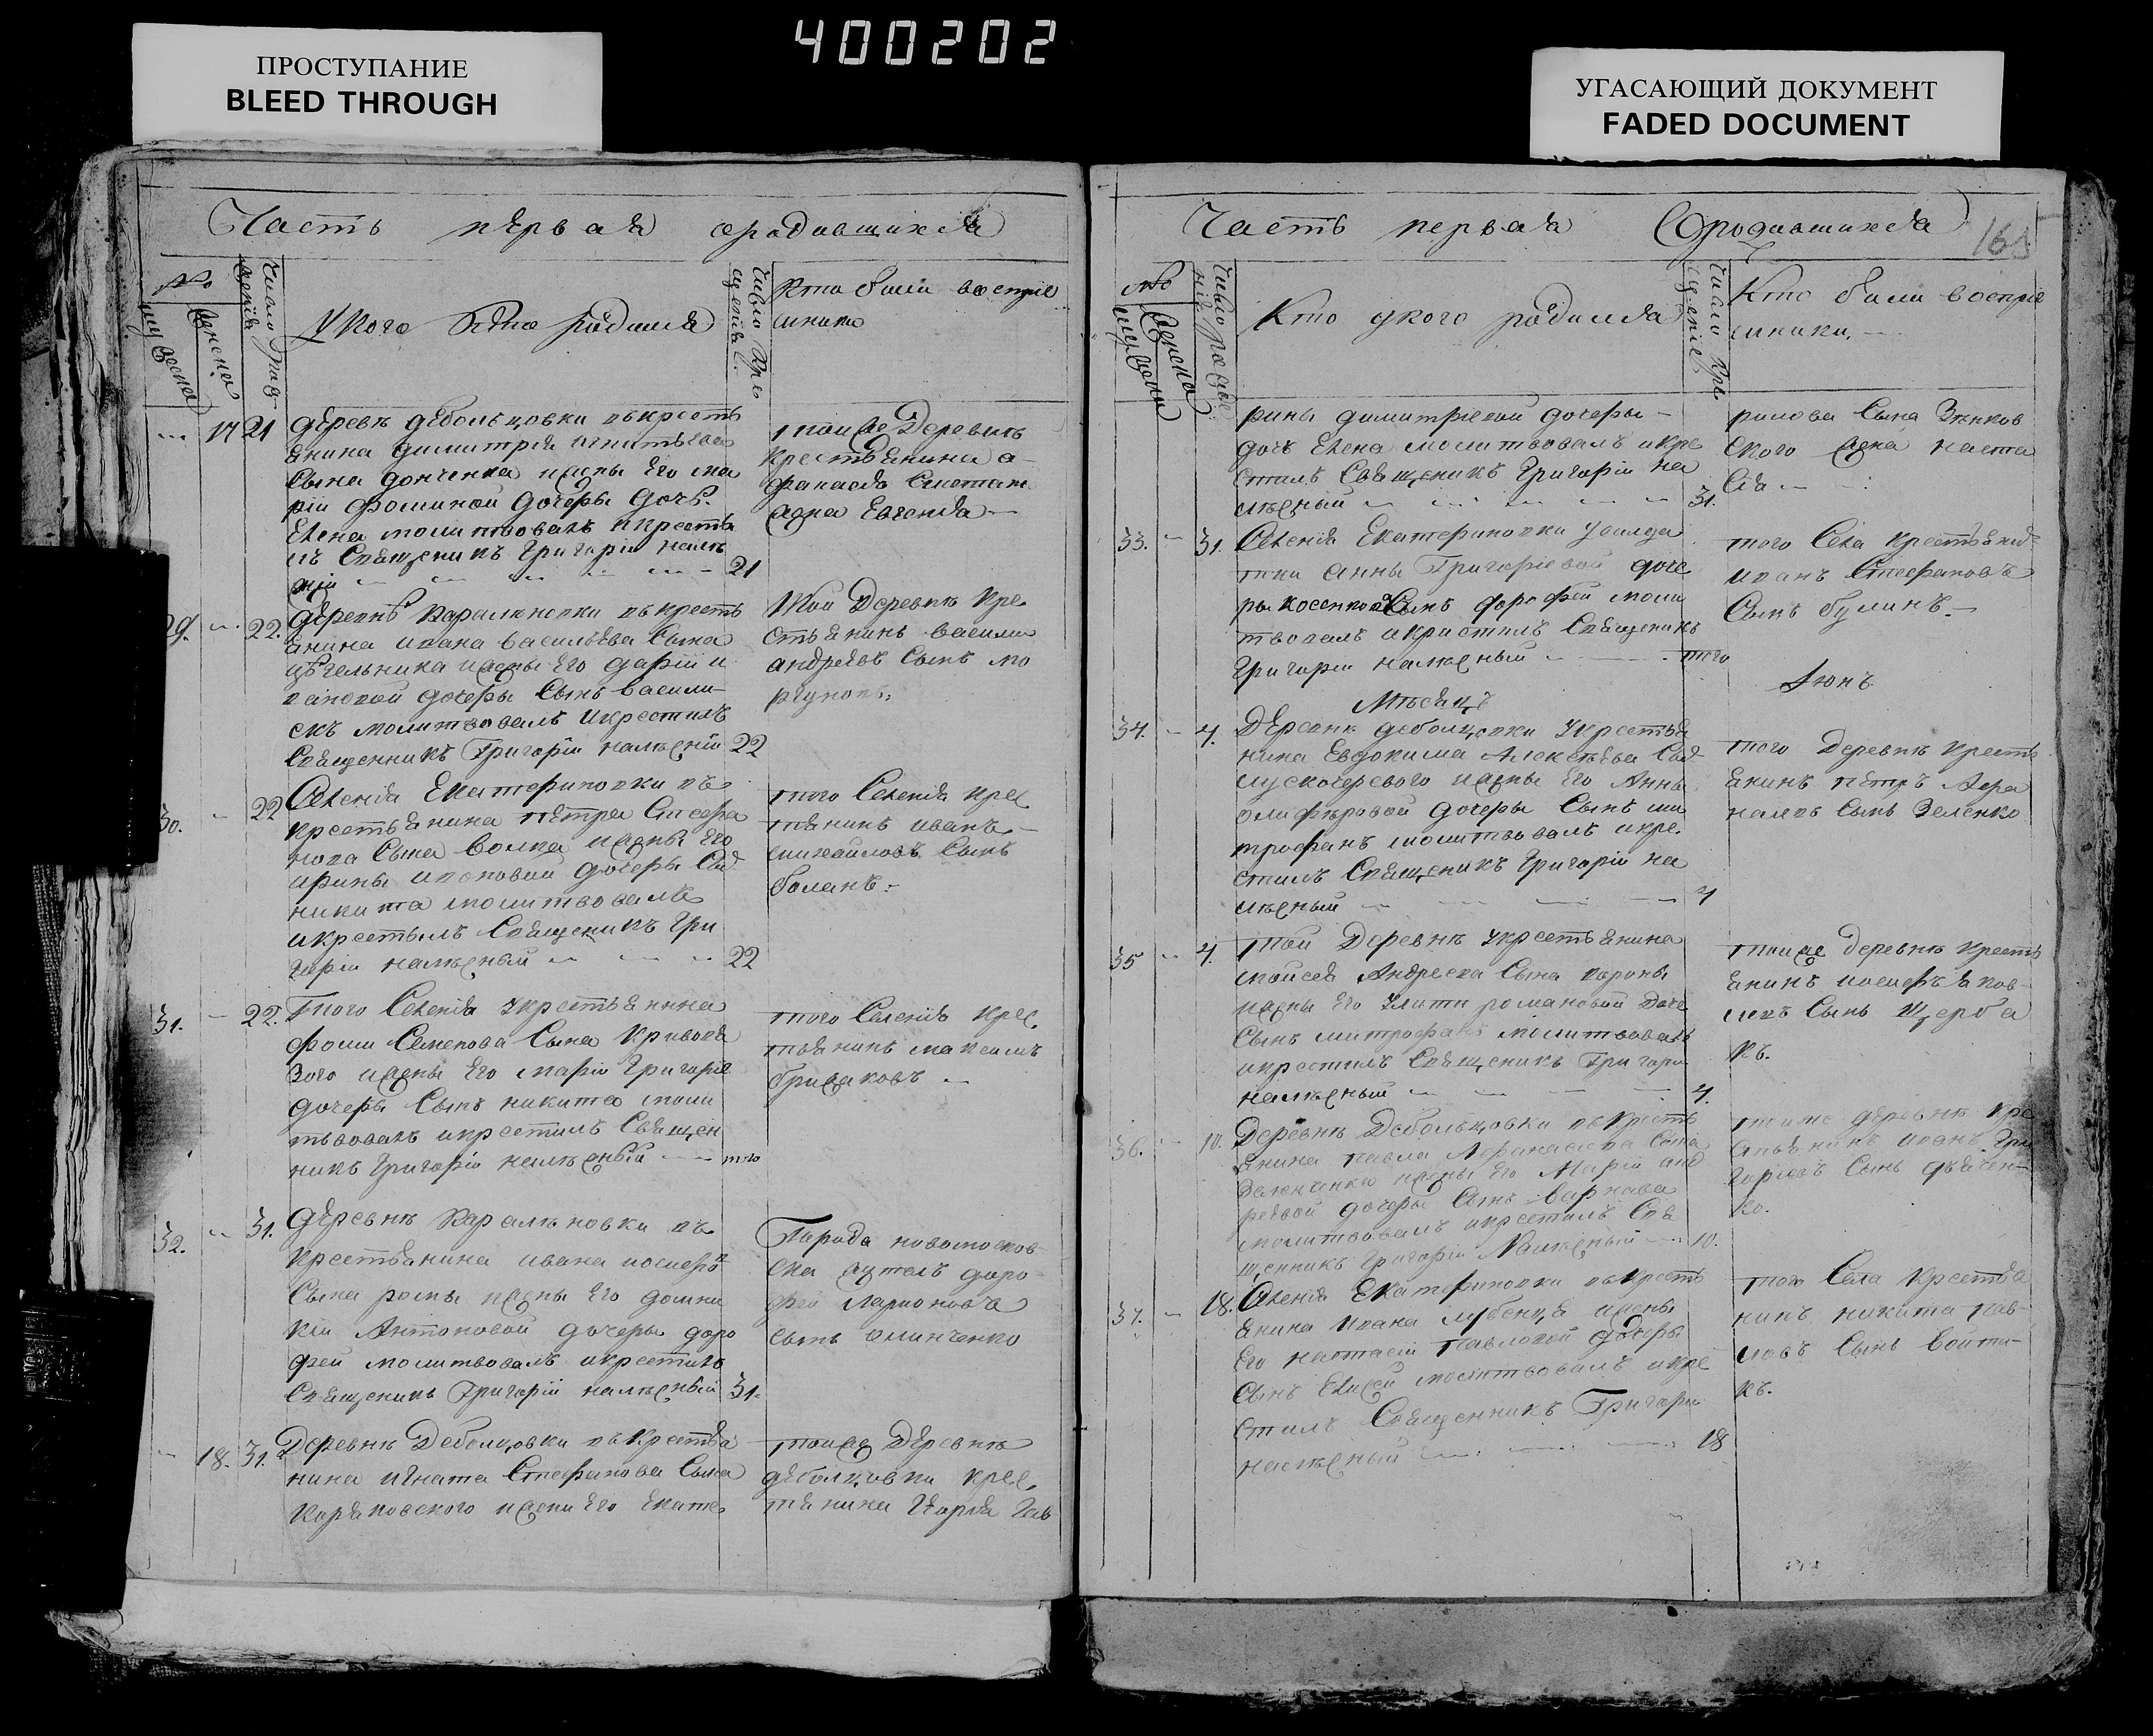 400202
ПРОСТУПАНИЕ
BLEED THROUGH
УГАСАЮЩИЙ ДОКУМЕНТ
FADED DOCUMENT
Часть первая ородившихся
№
Число рож
дения
У кого кто родился
Число кре
щения
Кто были восприе
мники
17 21 деревн деболцовки вкресть
янина димитрия игнатьева
сына донченка жены его ма
рiи фоминой дочеры дочь
Елена молитвовалъ икрести
лъ Священикъ Григорiи
21
тоиже Деревнѣ
крестьянина а
фанасiя
жена Евгенiя
29. 22. деревнѣ Каралиновки вкресть
янина ивана васильева сына
жены его дарiи и
вановой дочеры сынъ васили
скъ молитвовалъ икрестилъ
Священникъ Григорiи налѣжнiй 22
той Деревнѣ кре
стьянинъ василии
андреевъ сынъ мо
ргуновъ.
30. 22 Селенiя Екатериновки въ
крестьянина петра Стефа
нова сына волка жены его
ирины ивановой дочеры сы
никита молитвовалъ
икрестилъ Священикъ Гри
горiи налѣжный 22
того Селенiя крес
тянинъ иванъ
михайловъ сынъ
боланъ.
31. 22. Того Селенiя укрестьянина
фомы Семенова сына кривовя
зого жены его марiи Григорiе
дочеры сынъ никита моли
твовалъ икрестилъ Священ
никъ Григорiи налѣжный того
того Селенiя крес
тьянинъ максимъ
грижаковъ
32. 31. деревнѣ Каралиновки въ
крестьянина ивана иосифо
сына ромы жены его домни
кiи Антоновой дочеры доро
феи молитвовалъ икрестилъ
Священикъ Григорiй налѣжный 31.
Города новомосков
ска жителъ доро
феи Ларионовъ
сынъ олинченко
18. 31. Деревнѣ Деболцовки вкрестья
нина игната Стефанова сына
Каряковского жены его Екате
тоиже деревнѣ
деболцовки крес
тянина Iгорiя гав
Часть первая Ородившихся
165
№
Число рожде
нiя
Кто укого родился
Число кре
щенiе
Кто были воспрiе
мники.
рины димитрiевой дочеры
дочь Елена молитвовалъ икре
стилъ Священикъ Григорiи на
лѣжный 31.
рилова сына Зѣнков
ского жена наста
сiя
33. 31. Селенiя Екатериновки усолда
тки анны Григорiевой доче
ры косенковой сынъ дорофей моли
твовалъ икристилъ Священикъ
Григорiи налѣжный того
того Села крестьянин
иванъ Стефановъ
сынъ булинъ.
Мѣсяцъ Iюнь
34. 4. Деревнѣ деболцовки укрестья
нина Евдокима Алексѣева сы
мускочеревого жены его Анны
олифѣровой дочеры сынъ ми
трофанъ молитвовалъ икре
стилъ Священикъ Григорiи на
лѣжный 4
того Деревнѣ кресть
янинъ петръ Афа
насевъ сынъ Зеленко
35 4. той Деревнѣ укрестьянина
моисея Андреева сына вороны
жены его улиты романовой доче
сынъ митрофанъ молитвовалъ
икрестилъ Священикъ Григори
налѣжный 4.
тоиже деревнѣ кресть
янинъ иосифъ яков
левъ сынъ щерба
къ.
36. 10. Деревнѣ Деболцовки вкресть
янина павла Афанасiева сына
жены его Марiи анд
реевой дочеры сынъ варнава
молитвовалъ икрестилъ Свя
щенникъ Григорiи Налѣжный 10.
тоиже деревнѣ кре
стьянинъ иванъ Гри
горiевъ сынъ дьячен
ко.
37. 18. Селенiя Екатериновки вкресть
янина ивана лубенця жены
его настасiи павловой дочеры
сынъ Елисей молитвовалъ икре
стилъ Священникъ Григори
налѣжный 18
того Села крестья
нинъ никита пав
ловъ сынъ войти
къ.